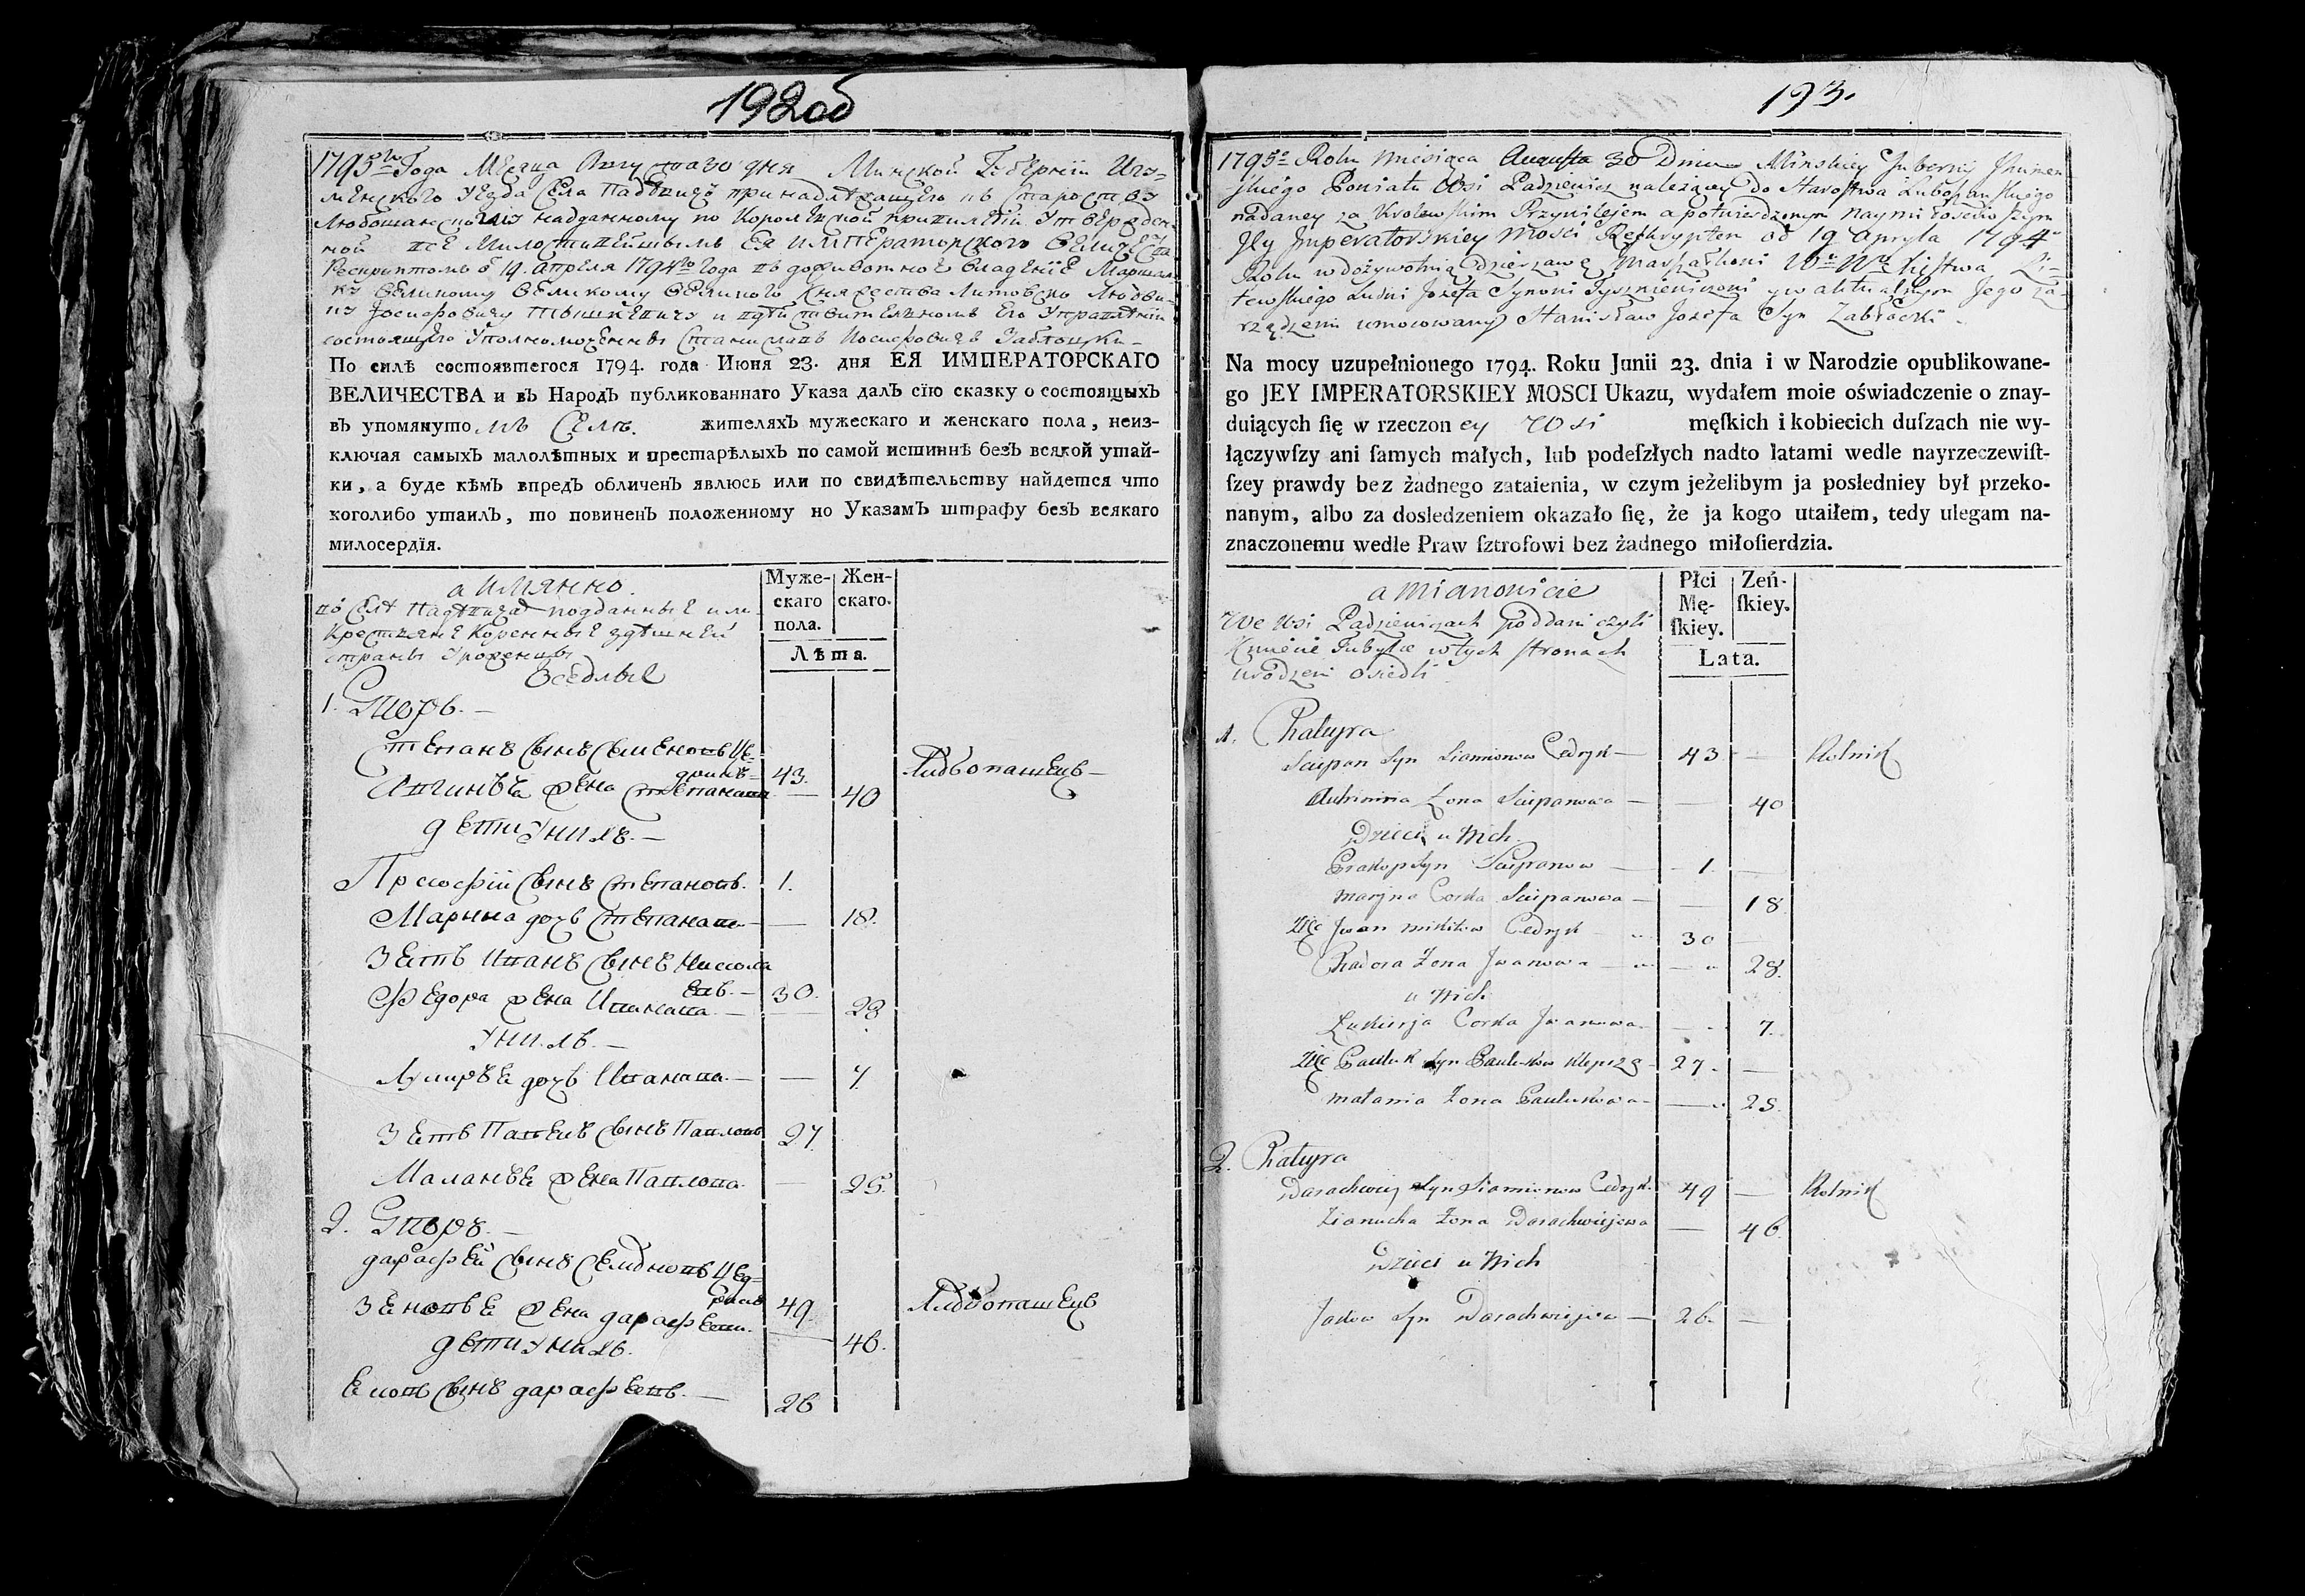 192об
1795го Года Месяца Августа 30 дня Минской Губернїи Игу-
менского Уезда Села Падѣвичъ принадлѣжащего къ Староству
Любошанскому наданному по Королевской Привилегїи Утвержден-
ной все Милостивейшымъ Ея императорского Величества
Рескриптомъ 19. апреля 1794го Года въ доживотное владѣнїе Маршал-
ку Великому Великого Княжества Литовского Людви-
ку Iосифовичу Тышкевичу и въ действителномъ Его Управленїи
состоящего Уполномоченны Станиславъ Иосифовичъ Заблоцки
По силѣ состоявшегося 1794. года Июня 23. дня ЕЯ ИМПЕРАТОРСКАГО
ВЕЛИЧЕСТВА и въ Народъ публикованнаго Указа далъ сїю сказку о состоящыхъ
въ упомянуто мъ Селѣ. жителяхъ мужескаго и женскаго пола, неиз-
ключая самыхъ малолѣтныхъ и престарѣлыхъ по самой истиннѣ безъ всякой утай-
ки, а буде кѣмъ впредъ обличенъ явлюсь или по свидѣтельству найдется что
коголибо утаилъ, то повиненъ положенному по Указамъ штрафу безъ всякаго
милосердїя.
а имянно.
Муже-
скаго
пола.
Жен-
скаго.
Лѣта.
въ Селѣ Падѣвичахъ подданные или
Крестьяне Коренные здѣшней
страны Уроженцы
Оседлые
1. Дворъ.
Степанъ сынъ Семеновъ Це-
дрикъ 43. Хлѣбопашецъ
жена Степанова — 40
дети У нихъ.
Прокофїй сынъ Степановъ. 1.
Марына дочь Степанова — 18.
Зеть Иванъ сынъ Микола
евъ. 30.
Федора жена Иванава. — 28
У нихъ.
Лукирья дочь Иванава. — 7.
Зеть Павелъ сынъ Павловъ 27.
Маланья жена Павлова. — 25.
2. Дворъ.
дарафей сынъ Семеновъ Цед-
рикъ 49. Хлѣбопашецъ
жена дарафеева. — 46.
дети У нихъ.
сынъ дарафеевъ. — 26
193.
1795o Roku Miesiąca Augusta 30 Dnia Mińskiey Gubernij Ihumeń
skiego Powiatu Wsi Padziewicz należącey do Starostwa Luboszanskiego
nadaney za Krolewskim Przywilejem a potwierdzonym naymiłosciwszym
Jey Imperatorskiey Mości Reskryptem od 19 Apryla 1794o
Roku w dożywotnią dzierżawę Marszałkowi Wo Wo Xięstwa Li-
tewskiego Ludwi Jozefa Synowi Tyszkiewiczowi y w aktualnym Jego za-
rządzeniu umocowany Stanisław Jozefa Syn Zabłocki.
Na mocy uzupełnionego 1794. Roku Junii 23. dnia i w Narodzie opublikowane-
go JEY IMPERATORSKIEY MOSCI Ukazu, wydałem moie oświadczenie o znay-
duiących ſię w rzeczon ey Wsi męſkich i kobiecich duſzach nie wy-
łączywſzy ani ſamych małych, lub podeſzłych nadto latami wedle nayrzeczewiſt-
ſzey prawdy bez żadnego zataienia, w czym jeżelibym ja posledniey był przeko-
nanym, albo za dosledzeniem okazało ſię, że ja kogo utaiłem, tedy ulegam na-
znaczonemu wedle Praw ſztrofowi bez żadnego miłoſierdzia.
a mianowicie
Płci
Mę-
ſkiey.
Zeń-
ſkiey.
Lata.
We Wsi Padziewiczach poddani czyli
Kmiecie Tubylce w tych stronach
urodzeni osiedli
1. Chatupa
Sciepan Syn Siamionow Cedryk — 43 — Rolnik
Żona Sciepanowa — — 40
Dzieci u Nich
Prakop Syn Sciepanow — 1. —
Maryna Corka Sciepanowa — — 18
Zięc Jwan Mikitow Cedryk — 30 —
Chadora Żona Jwanowa — — 28.
u Nich
Łukierja Corka Jwanowa — — 7.
Zięc Pauluk Syn Paulukow 27. —
Matania Żona Paulukowa — — 25.
2. Chatupa
Darachwiey Syn Siamionow Cedryk. 49 — Rolnik
Zianucha Żona Darachwiejowa — 46.
Dzieci u Nich
Syn Darachwiejow — 26. —